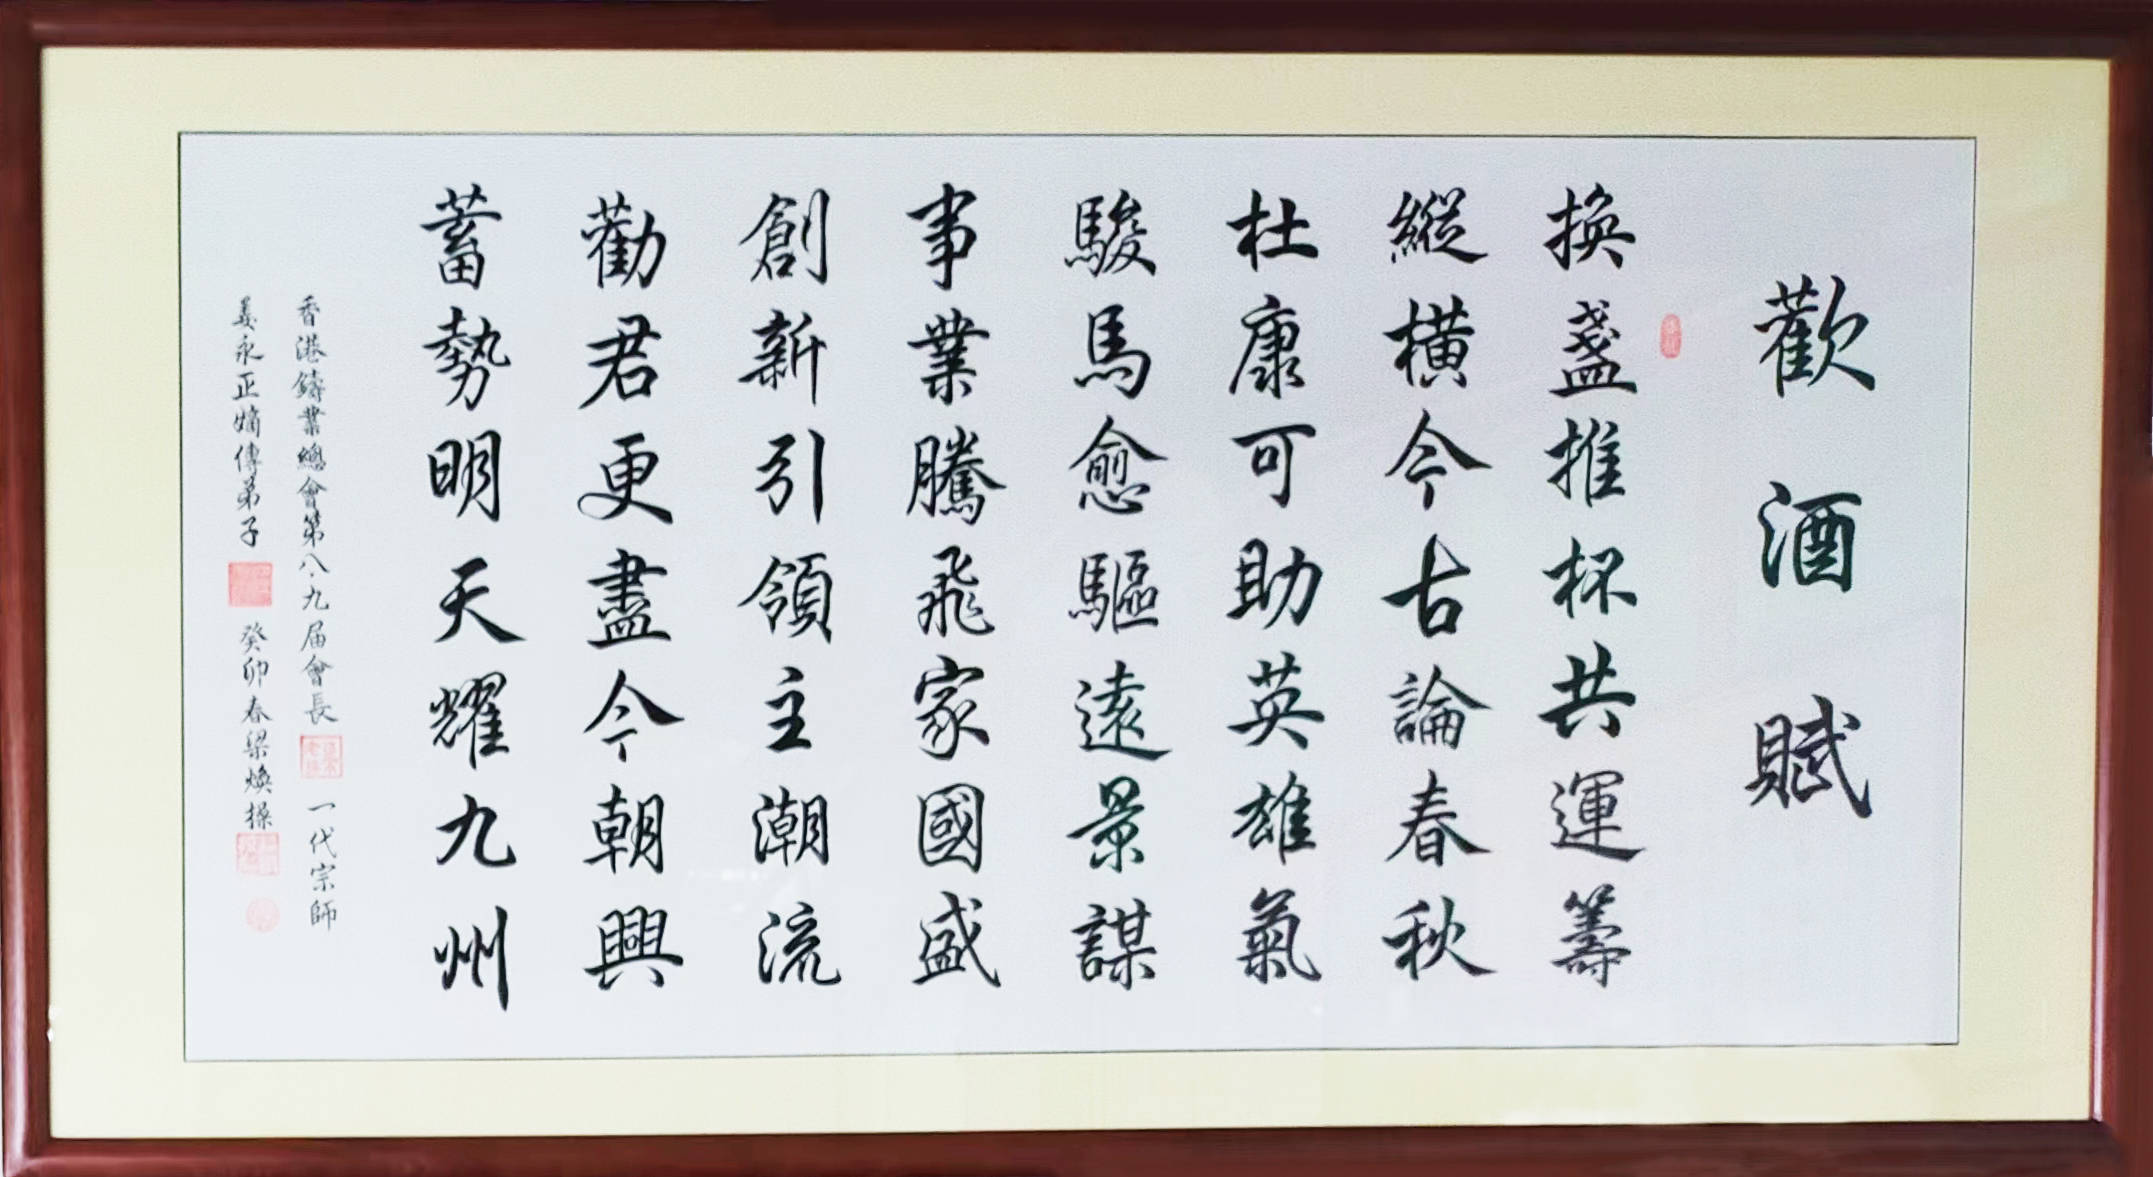 歡酒賦
換盞推杯共運籌
縱橫今古論春秋
杜康可助英雄氣
駿馬愈驅遠景謀
事業騰飛家國盛
創新引領主潮流
勸君更盡今朝興
蓄勢明天耀九州
香港鑄業總會第八·九届會長 一代宗師
姜永正嫡傳弟子 癸卯春梁煥操